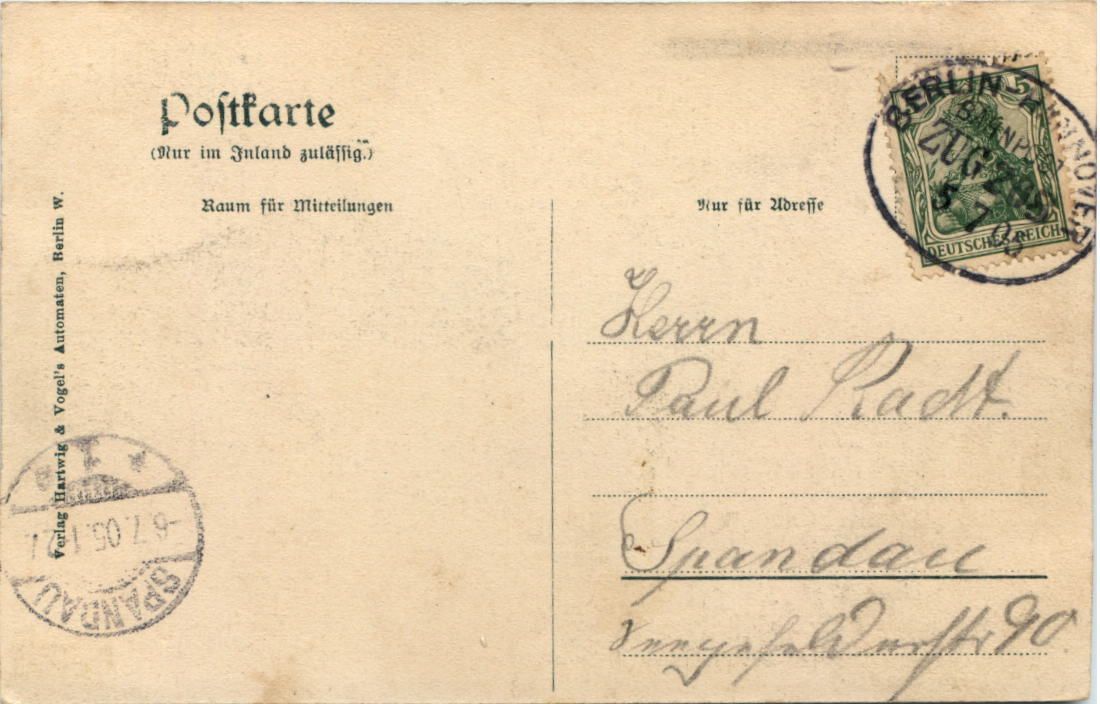 Postkarte
(Nur im Inland zulässig.)
Raum für Mitteilungen
Nur für Adresse
BERLIN-HANNOVER
BAHNPOST
ZUG
5 7 05
5
DEUTSCHES REICH
Verlag Hartwig & Vogel's Automaten, Berlin W.
Herrn
Paul Radt.
Spandau
Seegefelderstr 90
SPANDAU
-6.7.05.